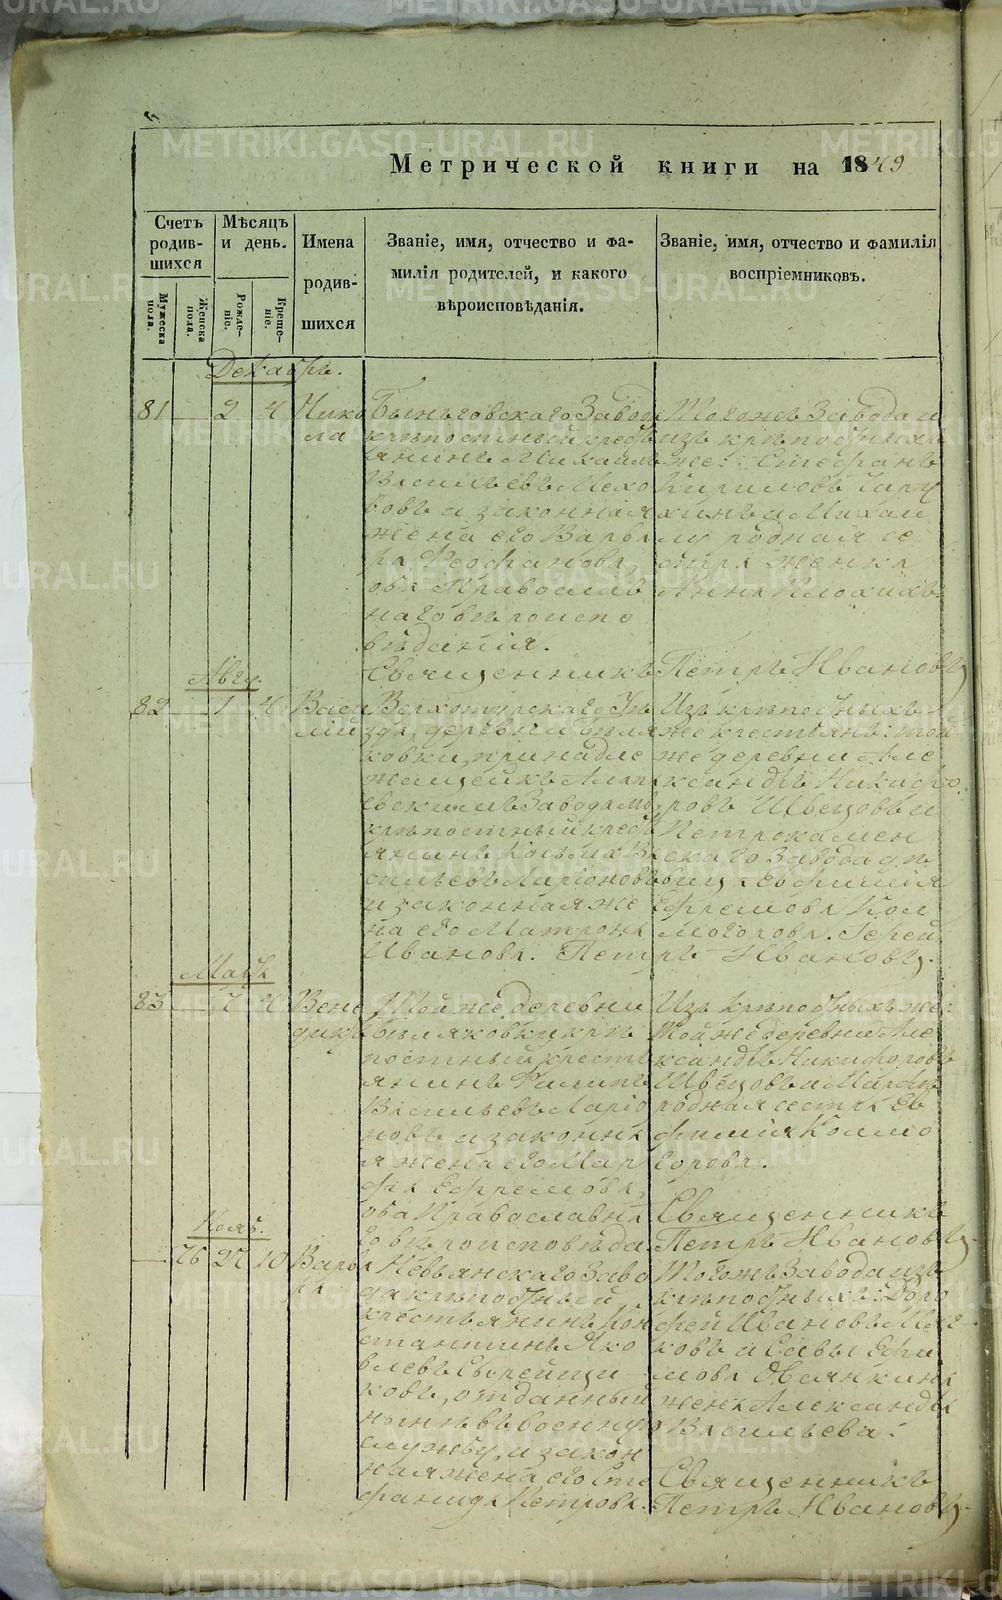 Метрической книги на 1849
Счетъ родив-шихся
Мѣсяцъ и день.
Имена родив-шихся
Званіе, имя, отчество и фа-
милія родителей, и какого
вѣроисповѣданія.
Званіе, имя, отчество и фамилія
воспріемниковъ.
Мужеска пола.
Женска пола.
Рожде-ніе.
Креще-ніе.
Декабрь.
81 — 2 4 Нико
ла
Быньговскаго Завода
крѣпостный кресть
янинъ Михаилъ
Васильевъ
и законная
жена его Варва
ра Феофанова,
оба Православ
наго вѣроиспо
вѣданія.
Тогожъ Завода и
изъ крѣпостныхъ
же: Стефанъ
Кириловъ
и Михаи
лу родная се
стра женка
Анна
Священникъ Петръ Ивановъ
82 — 1 4 Васи
лій
Верхотурскаго Уѣ
зда, деревни Беля
ковки, принадле
жащей къ Алапа
евскимъ Заводамъ
крѣпостный кресть
янинъ Козьма Ва
сильевъ Ларіоновъ
и законная же
на его Матрона
Иванова.
Изъ крѣпостныхъ
же крестьянъ: той
же деревни Але
ксандръ Никифо
ровъ Швецовъ и
Петрокамен
скаго Завода дѣ
вица Евфимія
Ефремова Кол
могорова. Іерей
Петръ Ивановъ.
83 — 7 4 Вене
диктъ
Той же деревни
Беляковки крѣ
постный кресть
янинъ Филипъ
Васильевъ Ларіо
новъ и законна
я жена его Мар
фа Ефремова,
оба Православна
го вѣроисповѣда.
Изъ крѣпостныхъ же:
той же деревни Але
ксандръ Никифоровъ
Швецовъ и Марфѣ
родная сестра Ев
фимія Колмо
горова.
Священникъ
Петръ Ивановъ
Нояб.
— 76 27 10 Варва
ра
Невьянскаго Заво
да крѣпостный
крестьянинъ Кон
стантинъ Яко
влевъ
ковъ, отданный
нынѣ въ военную
службу, и закон
ная жена его Сте
фанида Петрова.
Тогожъ Завода изъ
крѣпостныхъ: Доро
фей Ивановъ
ковъ и Савы Ефи
мова Овсянкина
жена Александра
Васильева.
Священникъ
Петръ Ивановъ
METRIKI.GASO-URAL.RU